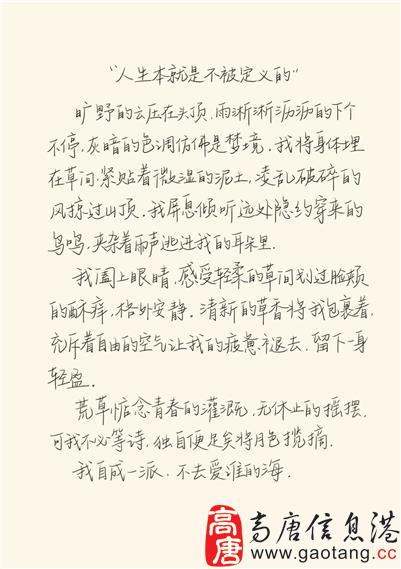 “人生本就是不被定义的”
旷野的云压在头顶.雨淅淅沥沥的下个
不停.灰暗的色调仿佛是梦境.我将身体埋
在草间.紧贴着微湿的泥土,凌乱破碎的
风掠过山顶.我屏息倾听远处隐约穿来的
鸟鸣,夹杂着雨声逃进我的耳朵里.
我阖上眼睛,感受轻柔的草间划过脸颊
的酥痒,格外安静.清新的草香将我包裹着,
充斥着自由的空气让我的疲惫褪去,留下一身
轻盈.
荒草惦念青春的灌溉,无休止的摇摆.
可我不必等诗,独自便足矣将月色揽摘.
我自成一派.不去爱谁的海.
高唐
高唐信息港
www.gaotang.cc